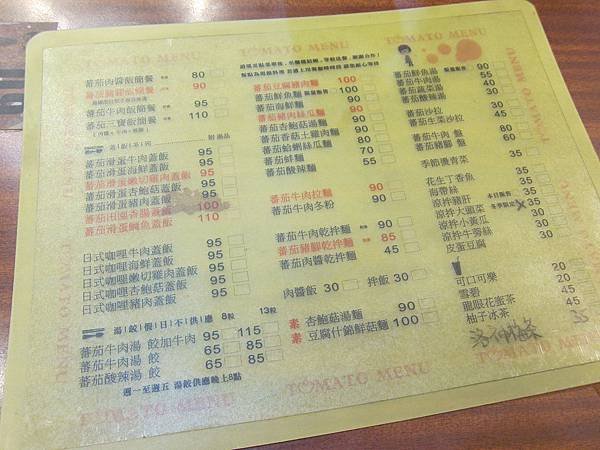 TOMATO MENU
蕃茄肉醬飯簡餐 80
90
蕃茄牛肉飯簡餐 95
蕃茄三寶飯簡餐 110
附 湯品
蕃茄滑蛋牛肉蓋飯 95
蕃茄滑蛋海鮮蓋飯 95
蕃茄滑蛋嫩切雞肉蓋飯 95
蕃茄滑蛋杏鮑菇蓋飯 95
蕃茄滑蛋豬肉蓋飯 95
蕃茄田園香腸蓋飯 100
蕃茄滑蛋鯛魚蓋飯 110
日式咖哩牛肉蓋飯 95
日式咖哩海鮮蓋飯 95
日式咖哩嫩切雞肉蓋飯 95
日式咖哩杏鮑菇蓋飯 95
日式咖哩豬肉蓋飯 95
湯(餃)假日不供應 8粒 13粒
蕃茄牛肉湯 餃加牛肉 95 115
蕃茄牛肉湯 餃 65 85
蕃茄酸辣湯 餃 65 85
週一至週五 湯餃供應晚上8點
蕃茄豆腐豬肉麵 100
蕃茄鮮魚麵 100
蕃茄海鮮麵 90
蕃茄豬肉絲瓜麵 100
蕃茄杏鮑菇湯麵 90
蕃茄香菇土雞肉麵 90
蕃茄蛤蜊絲瓜麵 80
蕃茄蚌麵 70
蕃茄酸辣麵 55
蕃茄牛肉拉麵 90
蕃茄牛肉冬粉 90
蕃茄牛肉乾拌麵 90
蕃茄豬腳乾拌麵 85
蕃茄肉醬乾拌麵 45
肉醬飯 30 拌飯 30
素 杏鮑菇湯麵 90
素 豆腐什錦鮮菇麵 100
蕃茄鮮魚湯 90
蕃茄牛肉湯 55
蕃茄蔬菜湯 40
蕃茄酸辣湯 45
蕃茄沙拉 45
蕃茄生菜沙拉 45
蕃茄牛腩 盤 80
蕃茄豬腳 盤 60
季節燙青菜 35
花生丁香魚 35
海帶絲 35
涼拌豬肝 35
涼拌大頭菜 35
涼拌小黃瓜 30
涼拌牛蒡絲 35
皮蛋豆腐 35
可口可樂 20
雪碧 20
龍眼花蜜茶 45
柚子冰茶 45
35
TOMATO MENU